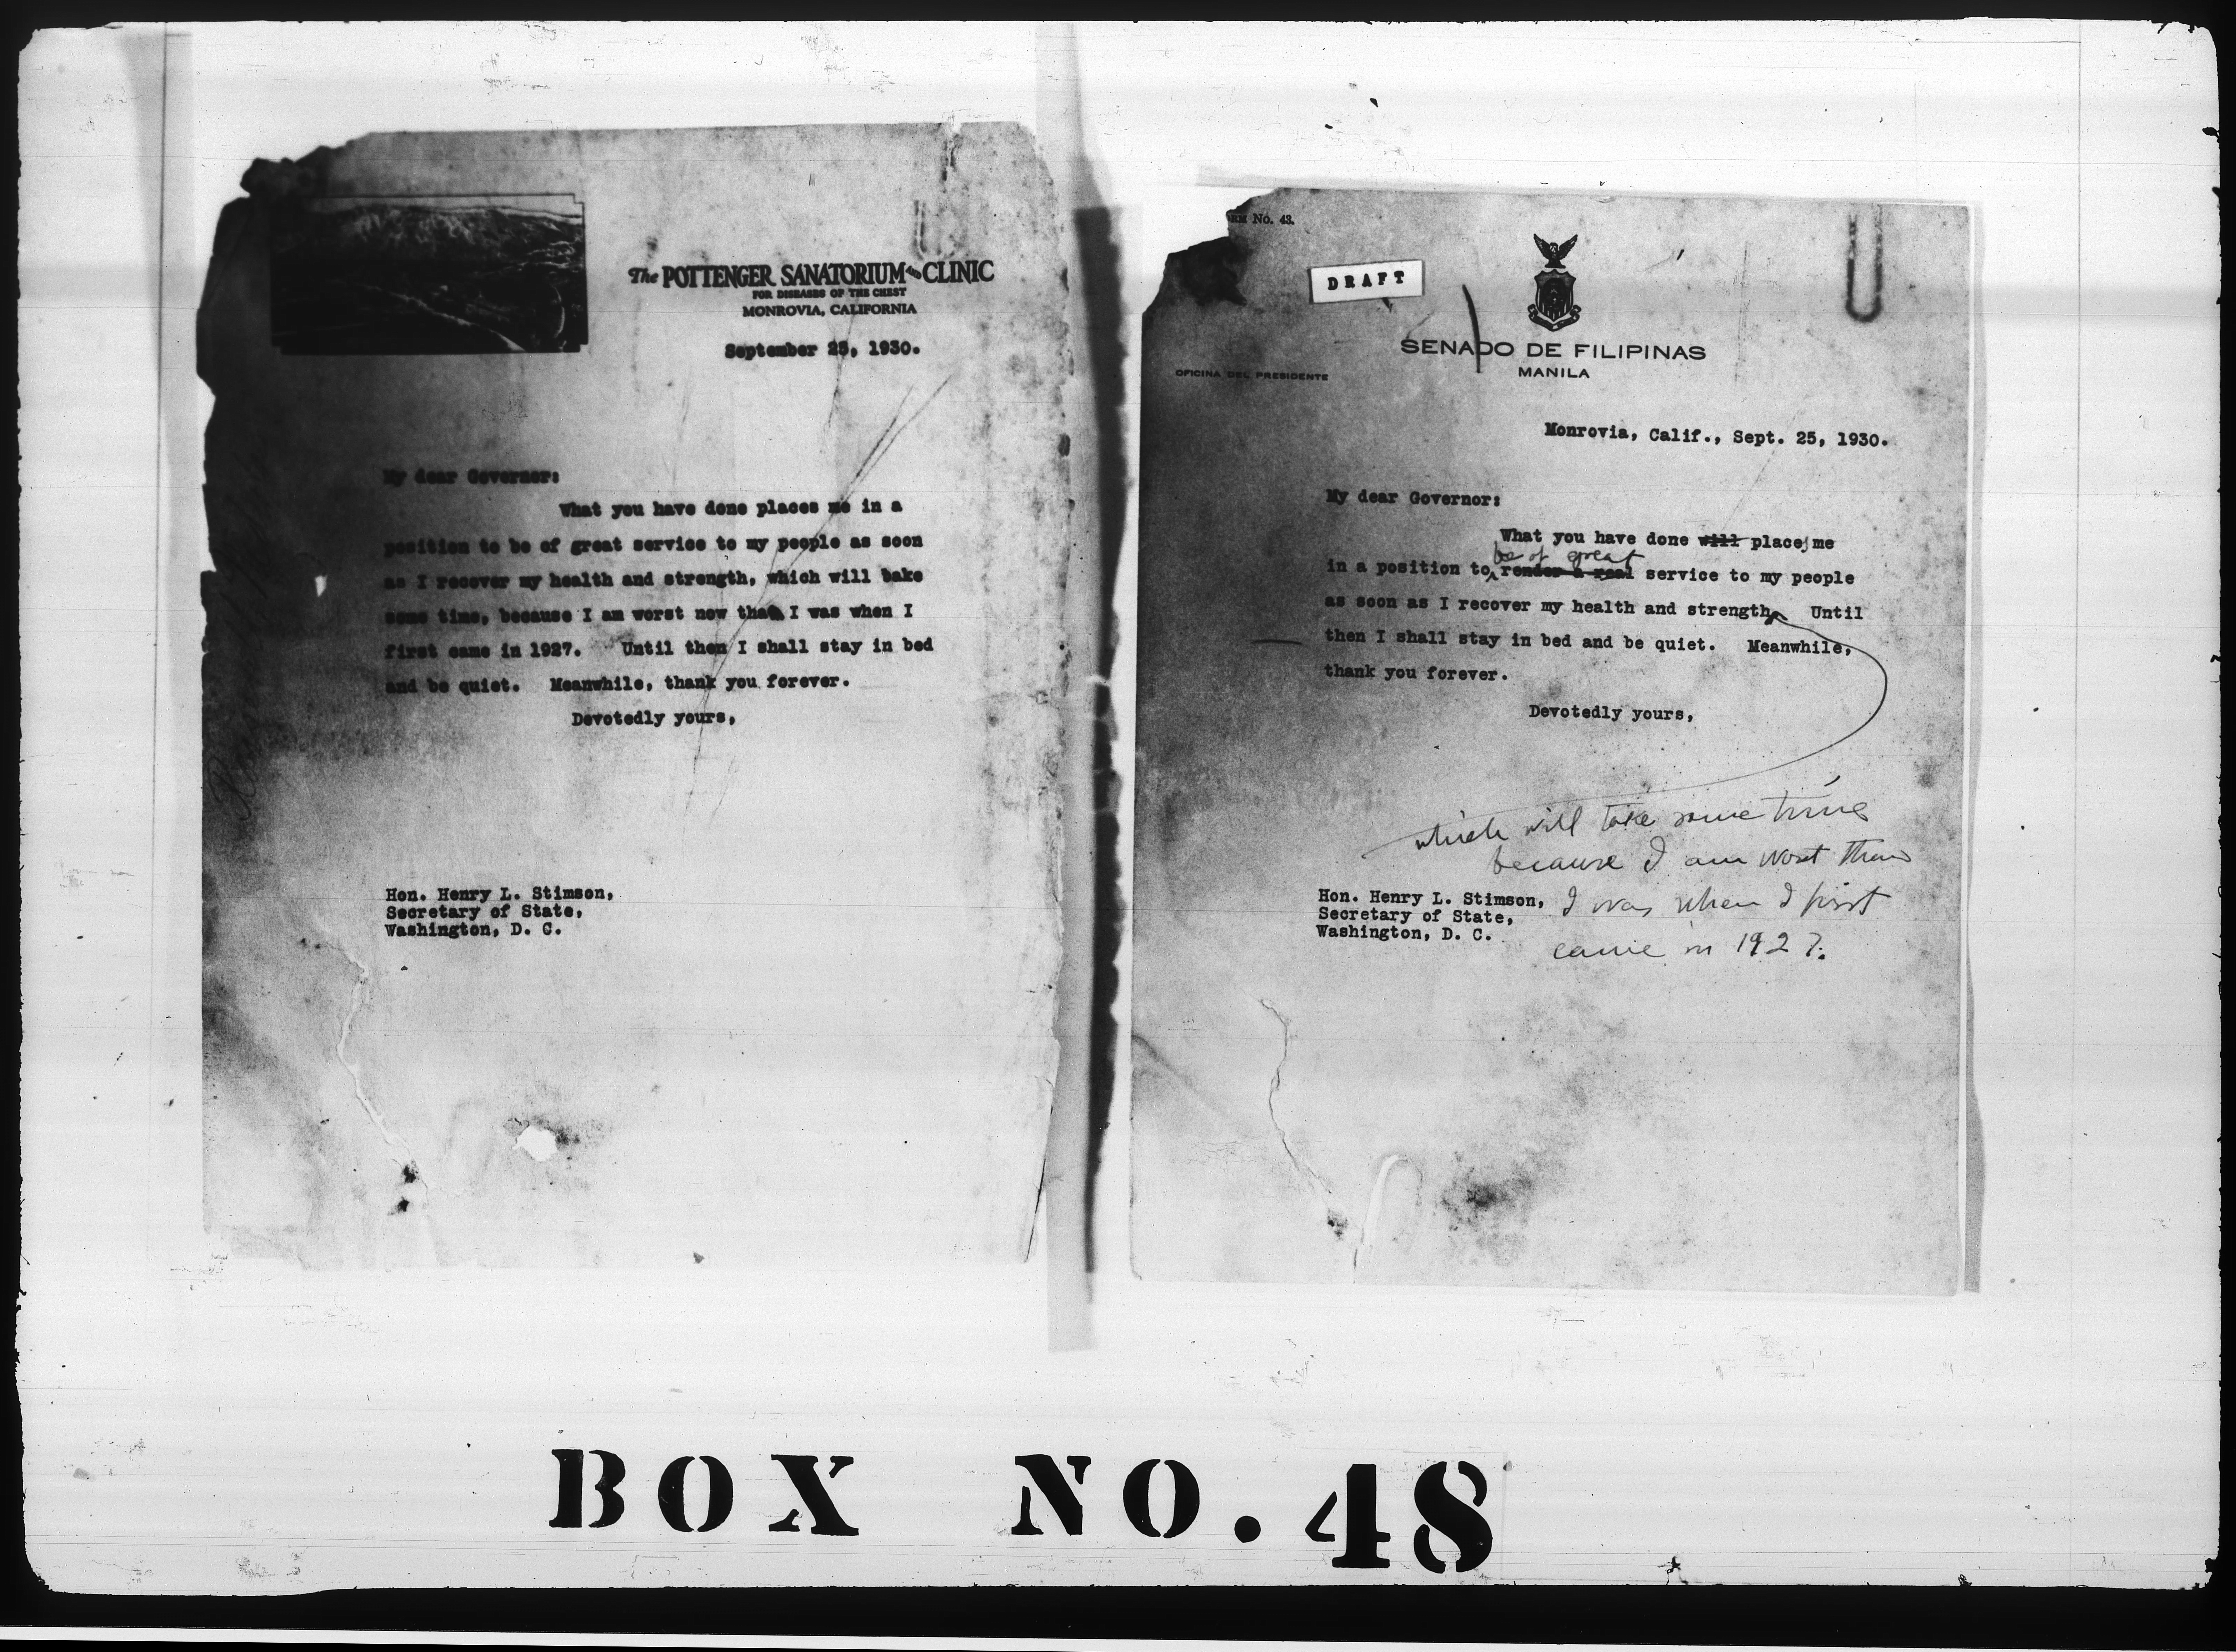 The POTTENGER SANATORIUM and CLINIC
FOR DISEASES OF THE CHEST
MONROVIA, CALIFORNIA
September 25, 1930.
My dear Governor:
What you have done places me in a
position to be of great service to my people as soon
as I recover my health and strength, which will take
some time, because I am worst now than I was when I
first came in 1927. Until then I shall stay in bed
and be quiet. Meanwhile, thank you forever.
Devotedly yours,
Hon. Henry L. Stimson,
Secretary of State,
Washington, D. C.
No. 43.
DRAFT
SENADO DE FILIPINAS
MANILA
OFICINA DEL PRESIDENTE
Monrovia, Calif., Sept. 25, 1930.
My dear Governor:
What you have done will places me
be of great
in a position to render a real service to my people
as soon as I recover my health and strength, Until
then I shall stay in bed and be quiet. Meanwhile,
thank you forever.
Devotedly yours,
which will take some time
because I am worst than
I was when I first
came in 1927.
Hon. Henry L. Stimson,
Secretary of State,
Washington, D. C.
BOX NO. 48